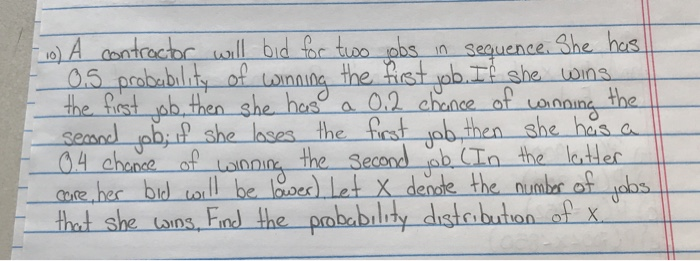 10) A contractor will bid for two jobs in sequence. She has
0.5 probability of winning the first job. If she wins
the first job, then she has a 0.2 chance of winning the
second job; if she loses the first job, then she has a
0.4 chance of winning the second job. (In the latter
case, her bid will be lower). Let X denote the number of jobs
that she wins. Find the probability distribution of X.